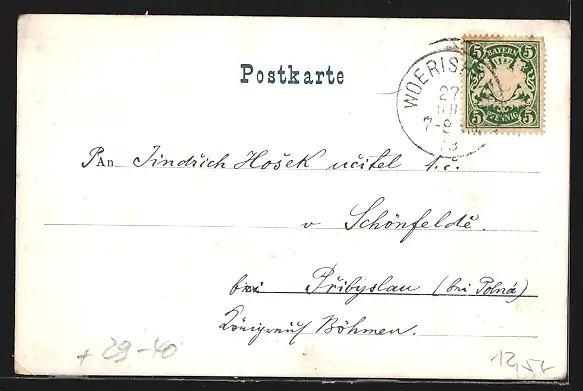 Postkarte
5 BAYERN 5
5 PFENNIG 5
WOERIS
27
7-9
Pan Jindřich Hošek učitel t.č.
v Schönfeldě.
bei Přibyslau (bei Polná)
Königreich Böhmen.
+ 29-40